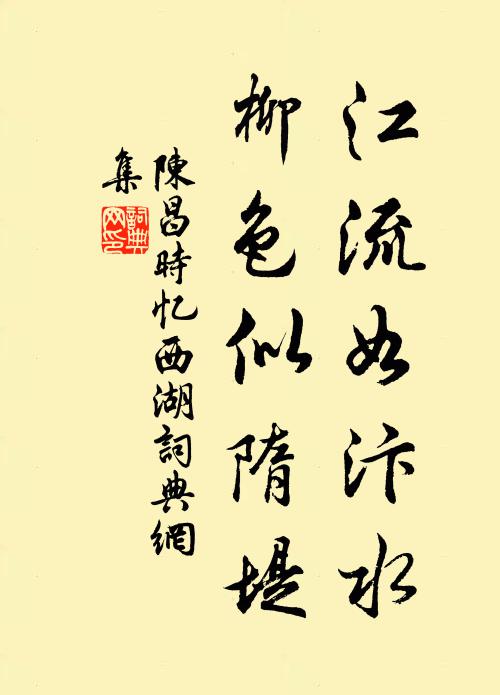 江流如汴水
柳色似隋堤
陳昌時忆西湖詞典網
集
詞典
网印